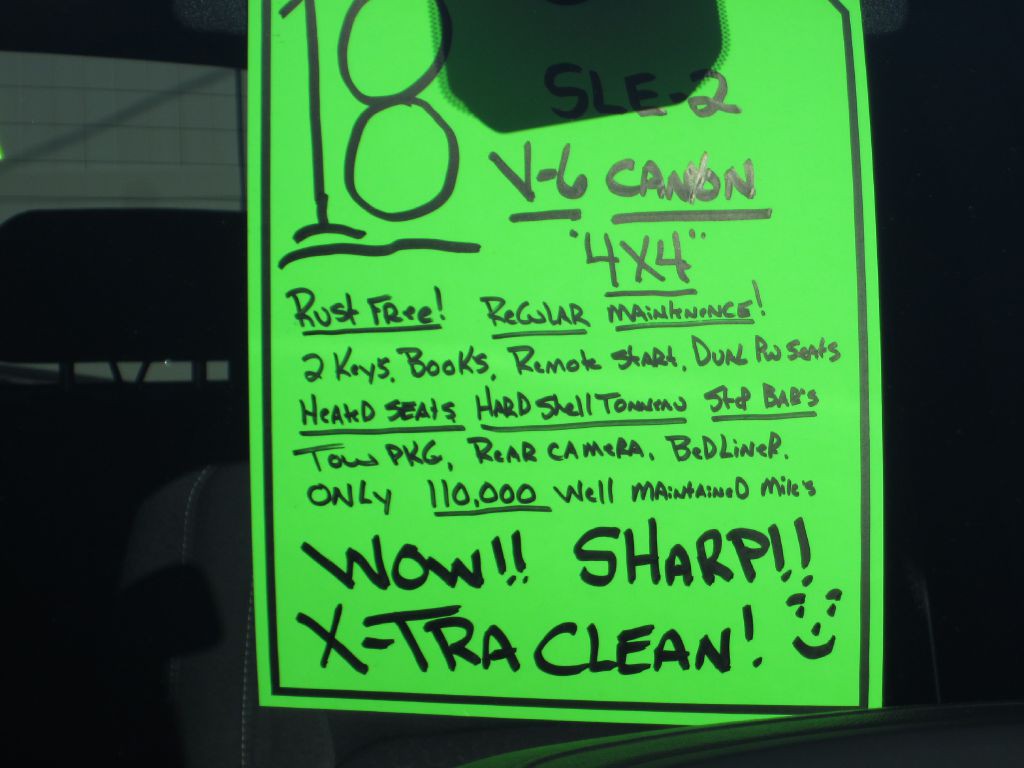 18
SLE-2
V-6 CANYON
"4X4"
Rust Free! Regular Maintnence!
2 Keys, Books, Remote Start, Dual Pw Seats
Heated Seats Hard Shell Tonneau Step Bar's
Tow PKG, Rear Camera, Bedliner.
Only 110,000 Well Maintained Mile's
WOW!! SHARP!!
X-TRA CLEAN!